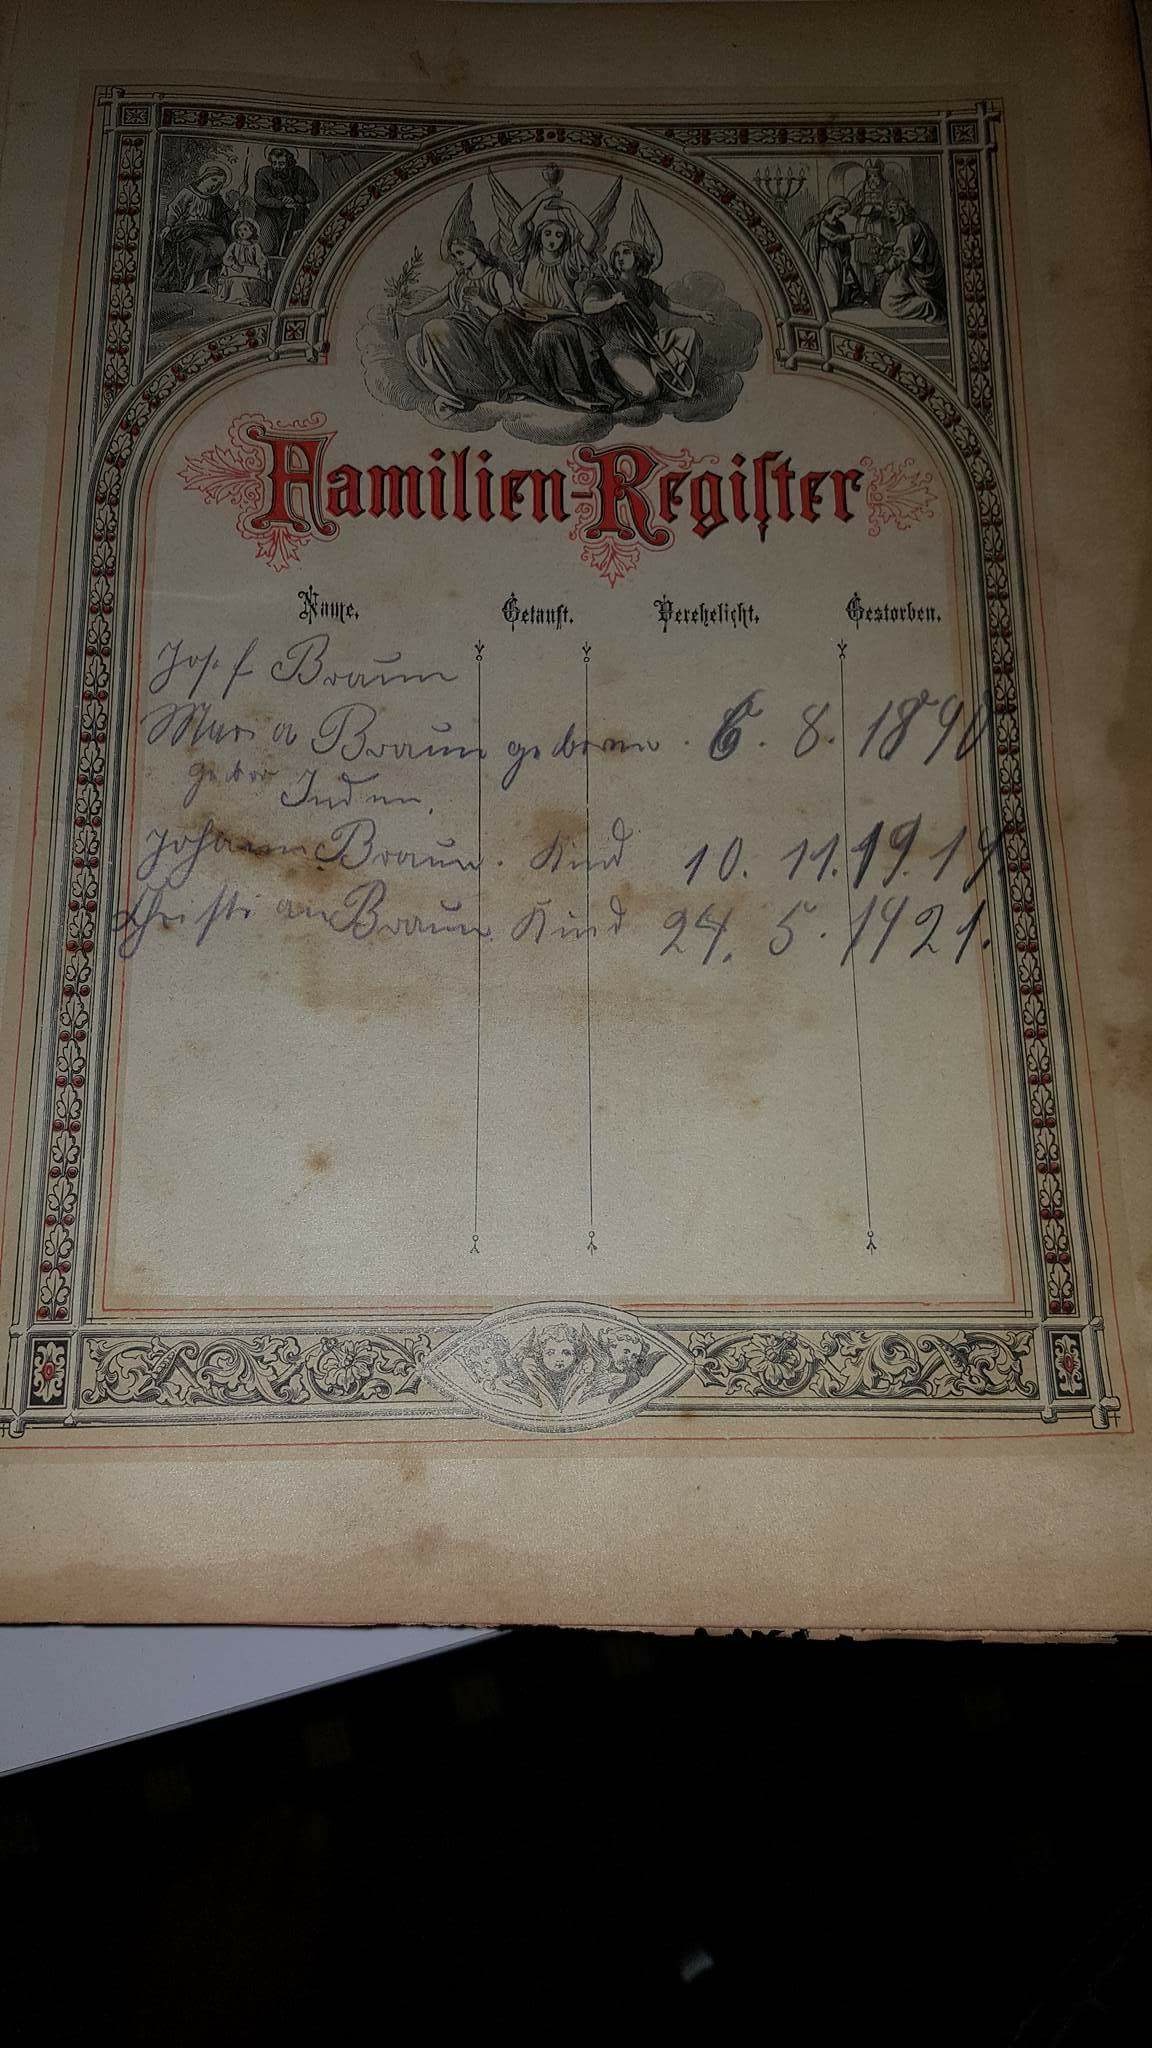 Familien-Regiſter
Name. Getauft. Verehelicht. Gestorben.
Josef Braun
Maria Braun geboren. 6. 8. 1890
Juden.
Johann Braun. Kind 10. 11. 19.19.
Christian Braun. Kind 24. 5. 1921.